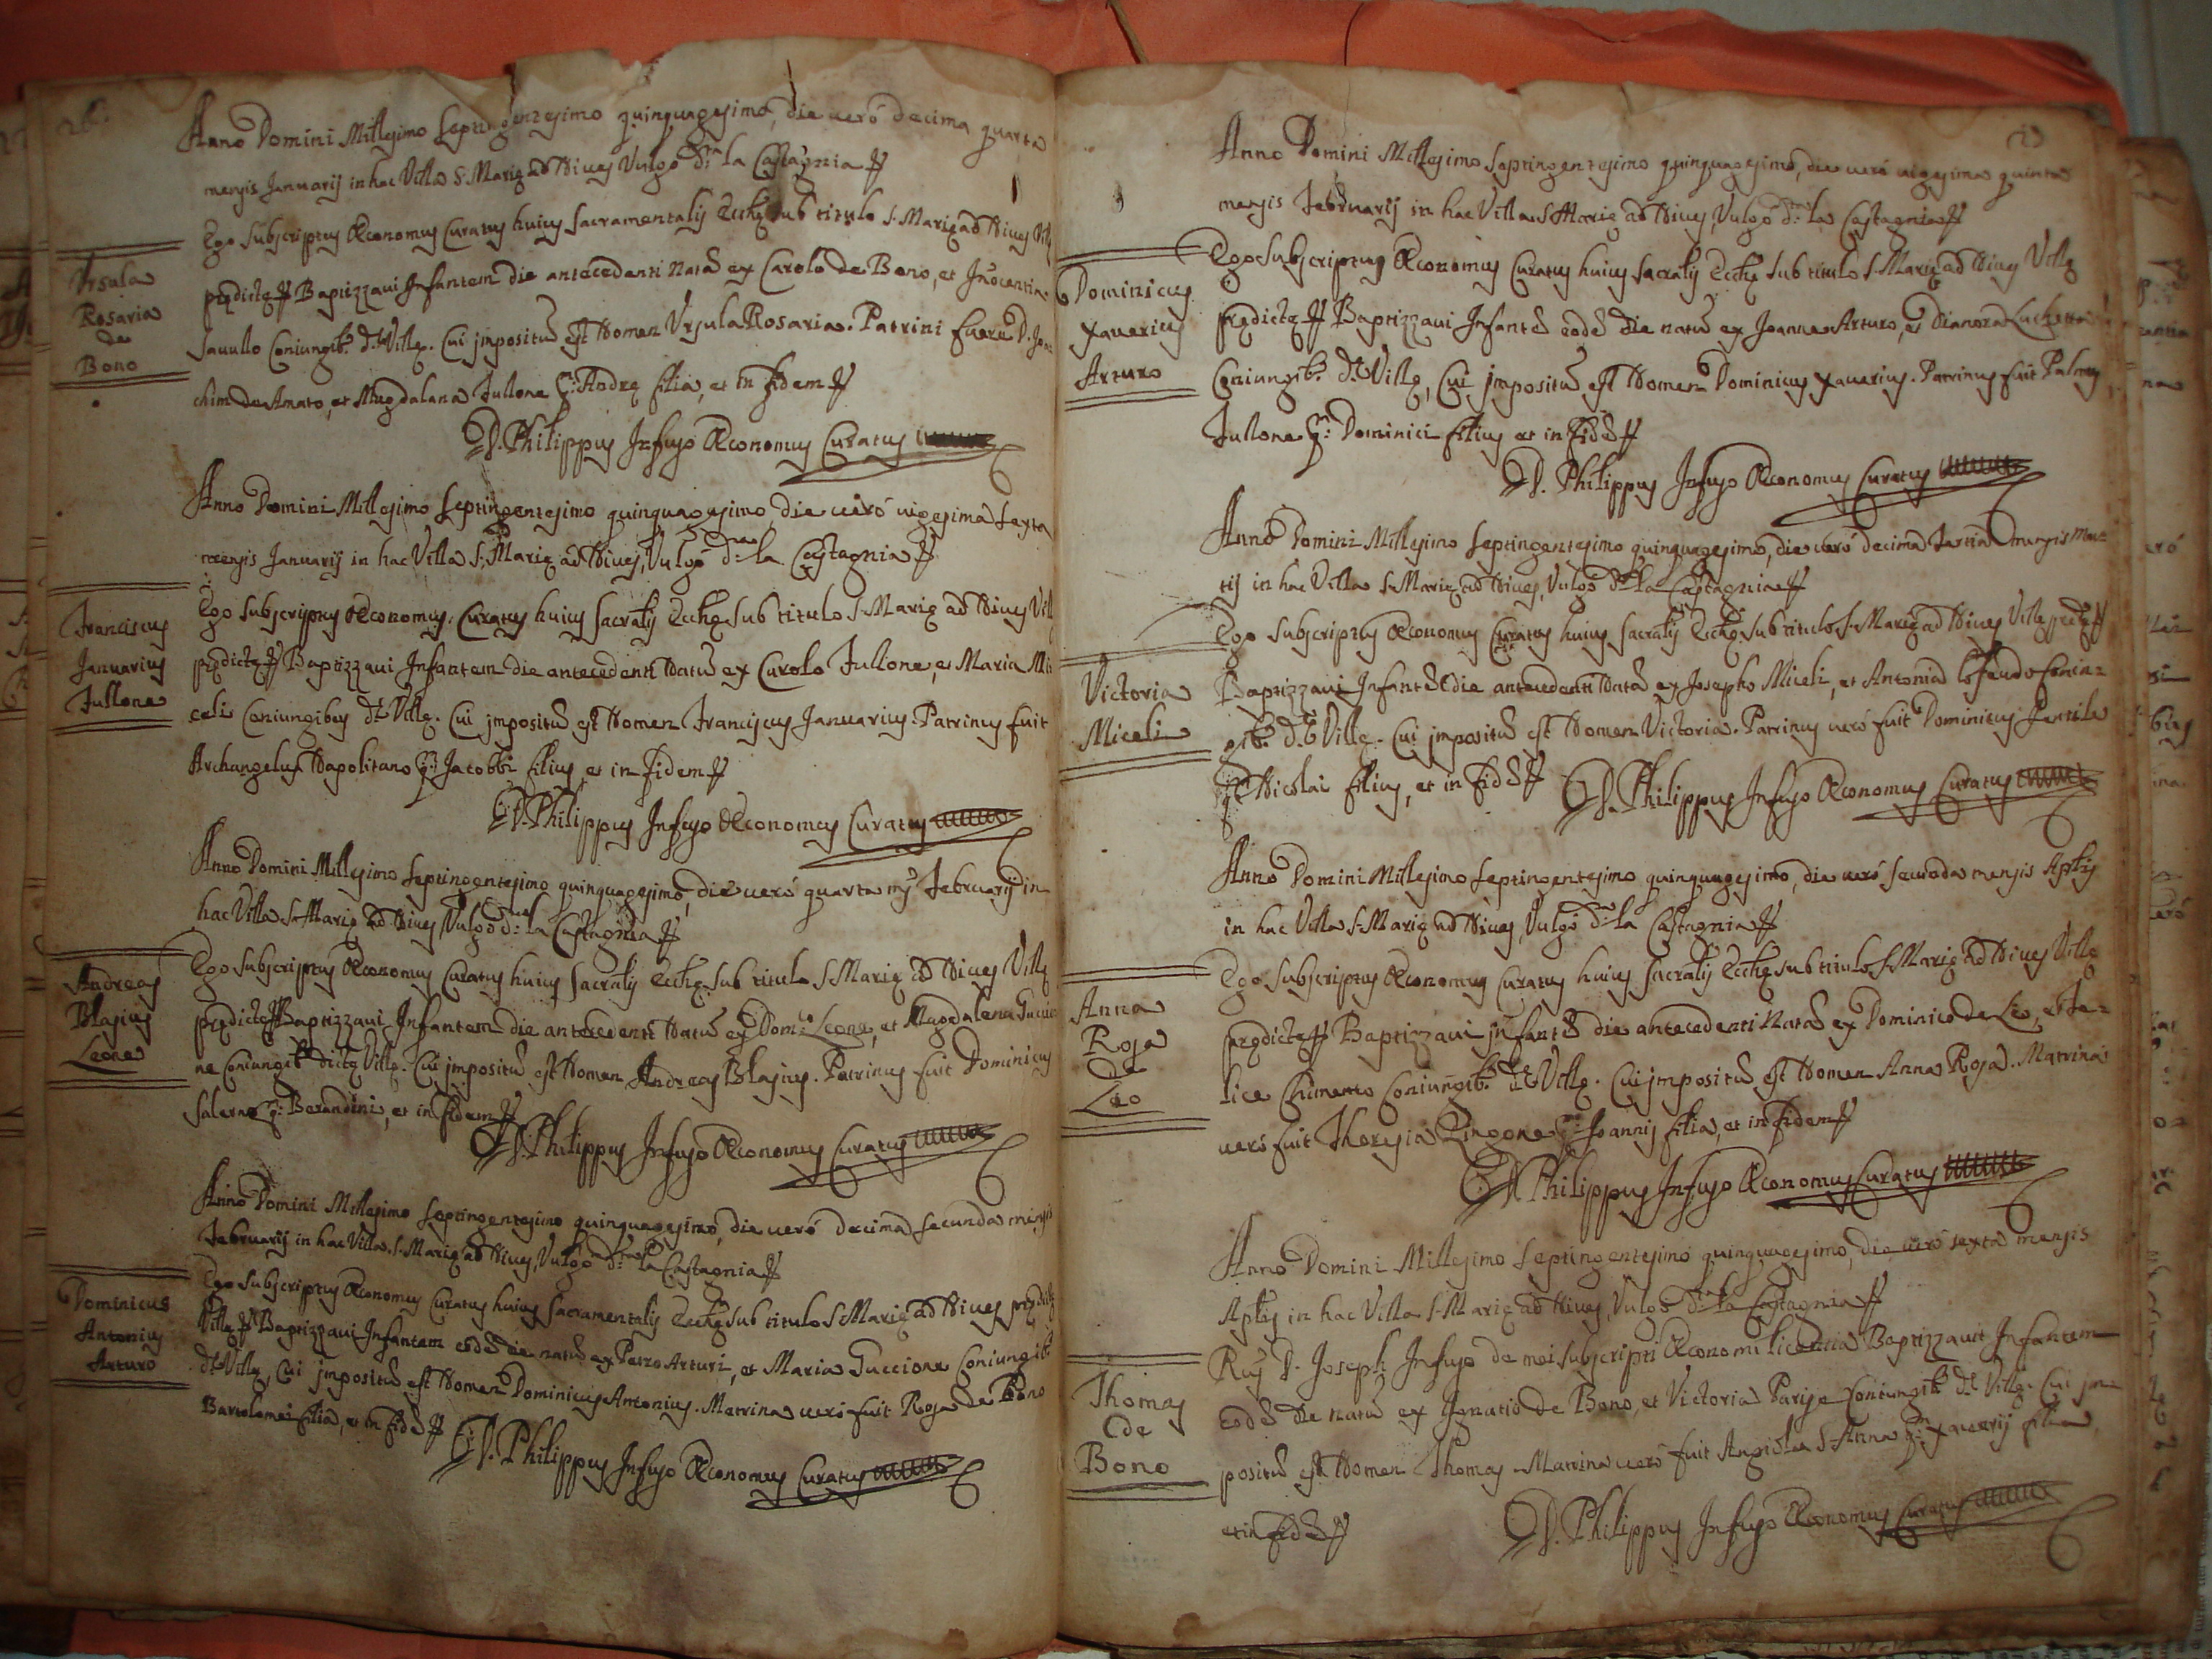 Anno Domini Millesimo Septingentesimo quinquagesimo, die uerò decima quarta
mensis Januarij in hac Villa S. Marię ad Niues Vulgò d.ta la Castagnia
Ego subscriptus Œconomus Curatus huius sacramentalis Ecclę sub titulo S. Marię ad Niues Villę
Vrsula
Rosaria
de
Bono
prędictę Baptizzaui Infantem die antecedenti Natã ex Carolo de Bono, et Inocentia
Sauullo Coniugib: d.tę Villę. Cui impositũ est Nomen Vrsula Rosaria. Patrini fuere D. Joa
chim de Amato, et Magdalana Tullone q: Andrę filia, et in Fidem
D. Philippus Infuso Œconomus Curatus
Anno Domini Millesimo Septingentesimo quinquagesimo die uerò uigesima sexta
mensis Januarij in hac Villa S. Marię ad Niues, Vulgò d.ta la Castagnia
Ego subscriptus Œconomus, Curatus huius sacralis Ecclę sub titulo S. Marię ad Niues Villę
Franciscus
Januarius
Tullone
prędictę Baptizzaui Infantem die antecedenti Natũ ex Carolo Tullone, et Maria Mi
celi Coniugibus d.tę Villę. Cui impositũ est Nomen Franciscus Januarius. Patrinus fuit
Archangelus Napolitano q: Jacobbi filius, et in Fidem
D. Philippus Infuso Œconomus Curatus
Anno Domini Millesimo Septingentesimo quinquagesimo, die uerò quarta ms Februarij in
hac Villa S. Marię ad Niues, Vulgò d.ta la Castagnia
Ego subscriptus Œconomus Curatus huius sacralis Ecclę sub titulo S. Marię ad Niues Villę
Andreas
Blasius
Leone
prędictę Baptizzaui Infantem die antecedenti Natũ ex Dom.co Leone, et Magdalena Guccio
ne Coniugib: dictę Villę. Cui impositũ est Nomen Andreas Blasius. Patrinus fuit Dominicus
Salerno q: Berandini, et in Fidem
D. Philippus Infuso Œconomus Curatus
Anno Domini Millesimo Septingentesimo quinquagesimo, die uerò decima secunda mensis
Februarij in hac Villa S. Marię ad Niues, Vulgò d.ta la Castagnia
Ego subscriptus Œconomus Curatus huius sacramentalis Ecclę sub titulo S. Marię ad Niues prędictę
Dominicus
Antonius
Arturo
Villę Baptizzaui Infantem eodẽ die natũ ex Petro Arturi, et Maria Guccione Coniugib:
d.tę Villę, Cui impositũ est Nomen Dominicus Antonius. Matrina uerò fuit Rosa de Bono
Bartolomei filia, et in Fidẽ
D. Philippus Infuso Œconomus Curatus
Anno Domini Millesimo Septingentesimo quinquagesimo, die uerò uigesima quinta
mensis Februarij in hac Villa S. Marię ad Niues, Vulgò d.ta la Castagnia
Ego subscriptus Œconomus Curatus huius sacralis Ecclę sub titulo S. Marię ad Niues Villę
Dominicus
Xauerius
Arturo
prędictę Baptizzaui Infantẽ eodẽ die natũ ex Joanne Arturo, et Dianora Luchetta
Coniugib: d.tę Villę, Cui impositũ est Nomen Dominicus Xauerius. Patrinus fuit Palmus
Tullone q: Dominici filius et in Fidẽ
D. Philippus Infuso Œconomus Curatus
Anno Domini Millesimo Septingentesimo quinquagesimo, die uerò decima tertia mensis Mar=
tij in hac Villa S. Marię ad Niues, Vulgò d.ta la Castagnia
Ego subscriptus Œconomus Curatus huius sacralis Ecclę sub titulo S. Marię ad Niues Villę
Victoria
Miceli
Baptizzaui Infantẽ die antecedenti Natã ex Josepho Miceli, et Antonia Coniu=
gib: d.tę Villę. Cui impositũ est Nomen Victoria. Patrinus uerò fuit Dominicus Gentile
q: Nicolai filius, et in Fidẽ
D. Philippus Infuso Œconomus Curatus
Anno Domini Millesimo Septingentesimo quinquagesimo, die uerò secunda mensis Aplis
in hac Villa S. Marię ad Niues, Vulgò d.ta la Castagnia
Ego subscriptus Œconomus Curatus huius sacralis Ecclę sub titulo S. Marię ad Niues Villę
Anna
Rosa
de
Leo
prędictę Baptizzaui infantẽ die antecedenti Natã ex Dominico de Leo, et Fe=
lice Chimento Coniugib: d.tę Villę. Cui impositũ est Nomen Anna Rosa. Matrina
uerò fuit Theresia Zingone q: Joannis filia, et in Fidem
D. Philippus Infuso Œconomus Curatus
Anno Domini Millesimo Septingentesimo quinquagesimo, die uerò sexta mensis
Aplis in hac Villa S. Marię ad Niues, Vulgò d.ta la Castagnia
Thomas
de
Bono
D. Joseph Infuso de mei subscripti Œconomi licentia Baptizzauit Infantem
eodẽ die natũ ex Ignatio de Bono, et Victoria Parise Coniugib: d.tę Villę. Cui im=
positũ est Nomen Thomas. Matrina uerò fuit Angiola S. Anna q: Xauerij filia,
et in Fidẽ
D. Philippus Infuso Œconomus Curatus